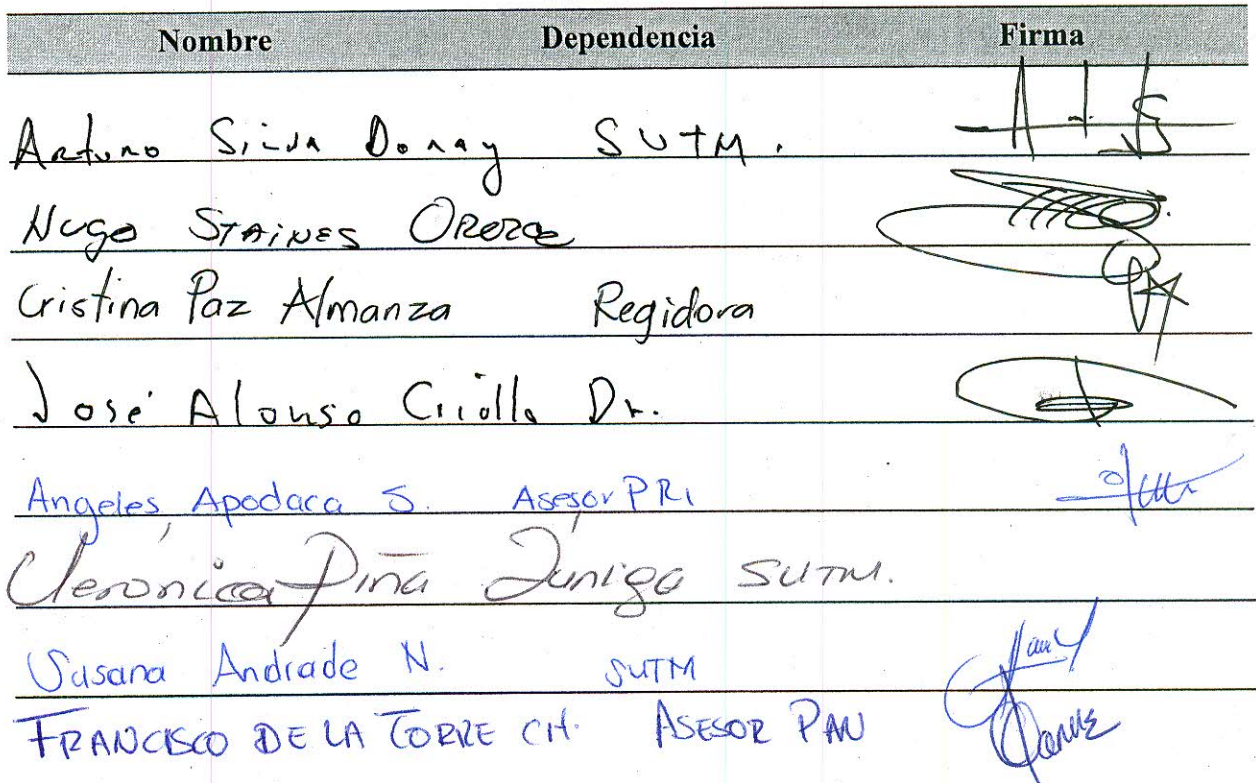 Nombre Dependencia Firma
Arturo Silva Donay SUTM.
Hugo STAINES OROZCO
Cristina Paz Almanza Regidora
José Alonso Criollo Dr.
Angeles Apodaca S. Asesor PRI
Verónica Piña Zúniga SUTM.
Susana Andrade N. SUTM
FRANCISCO DE LA TORRE CH. ASESOR PAN